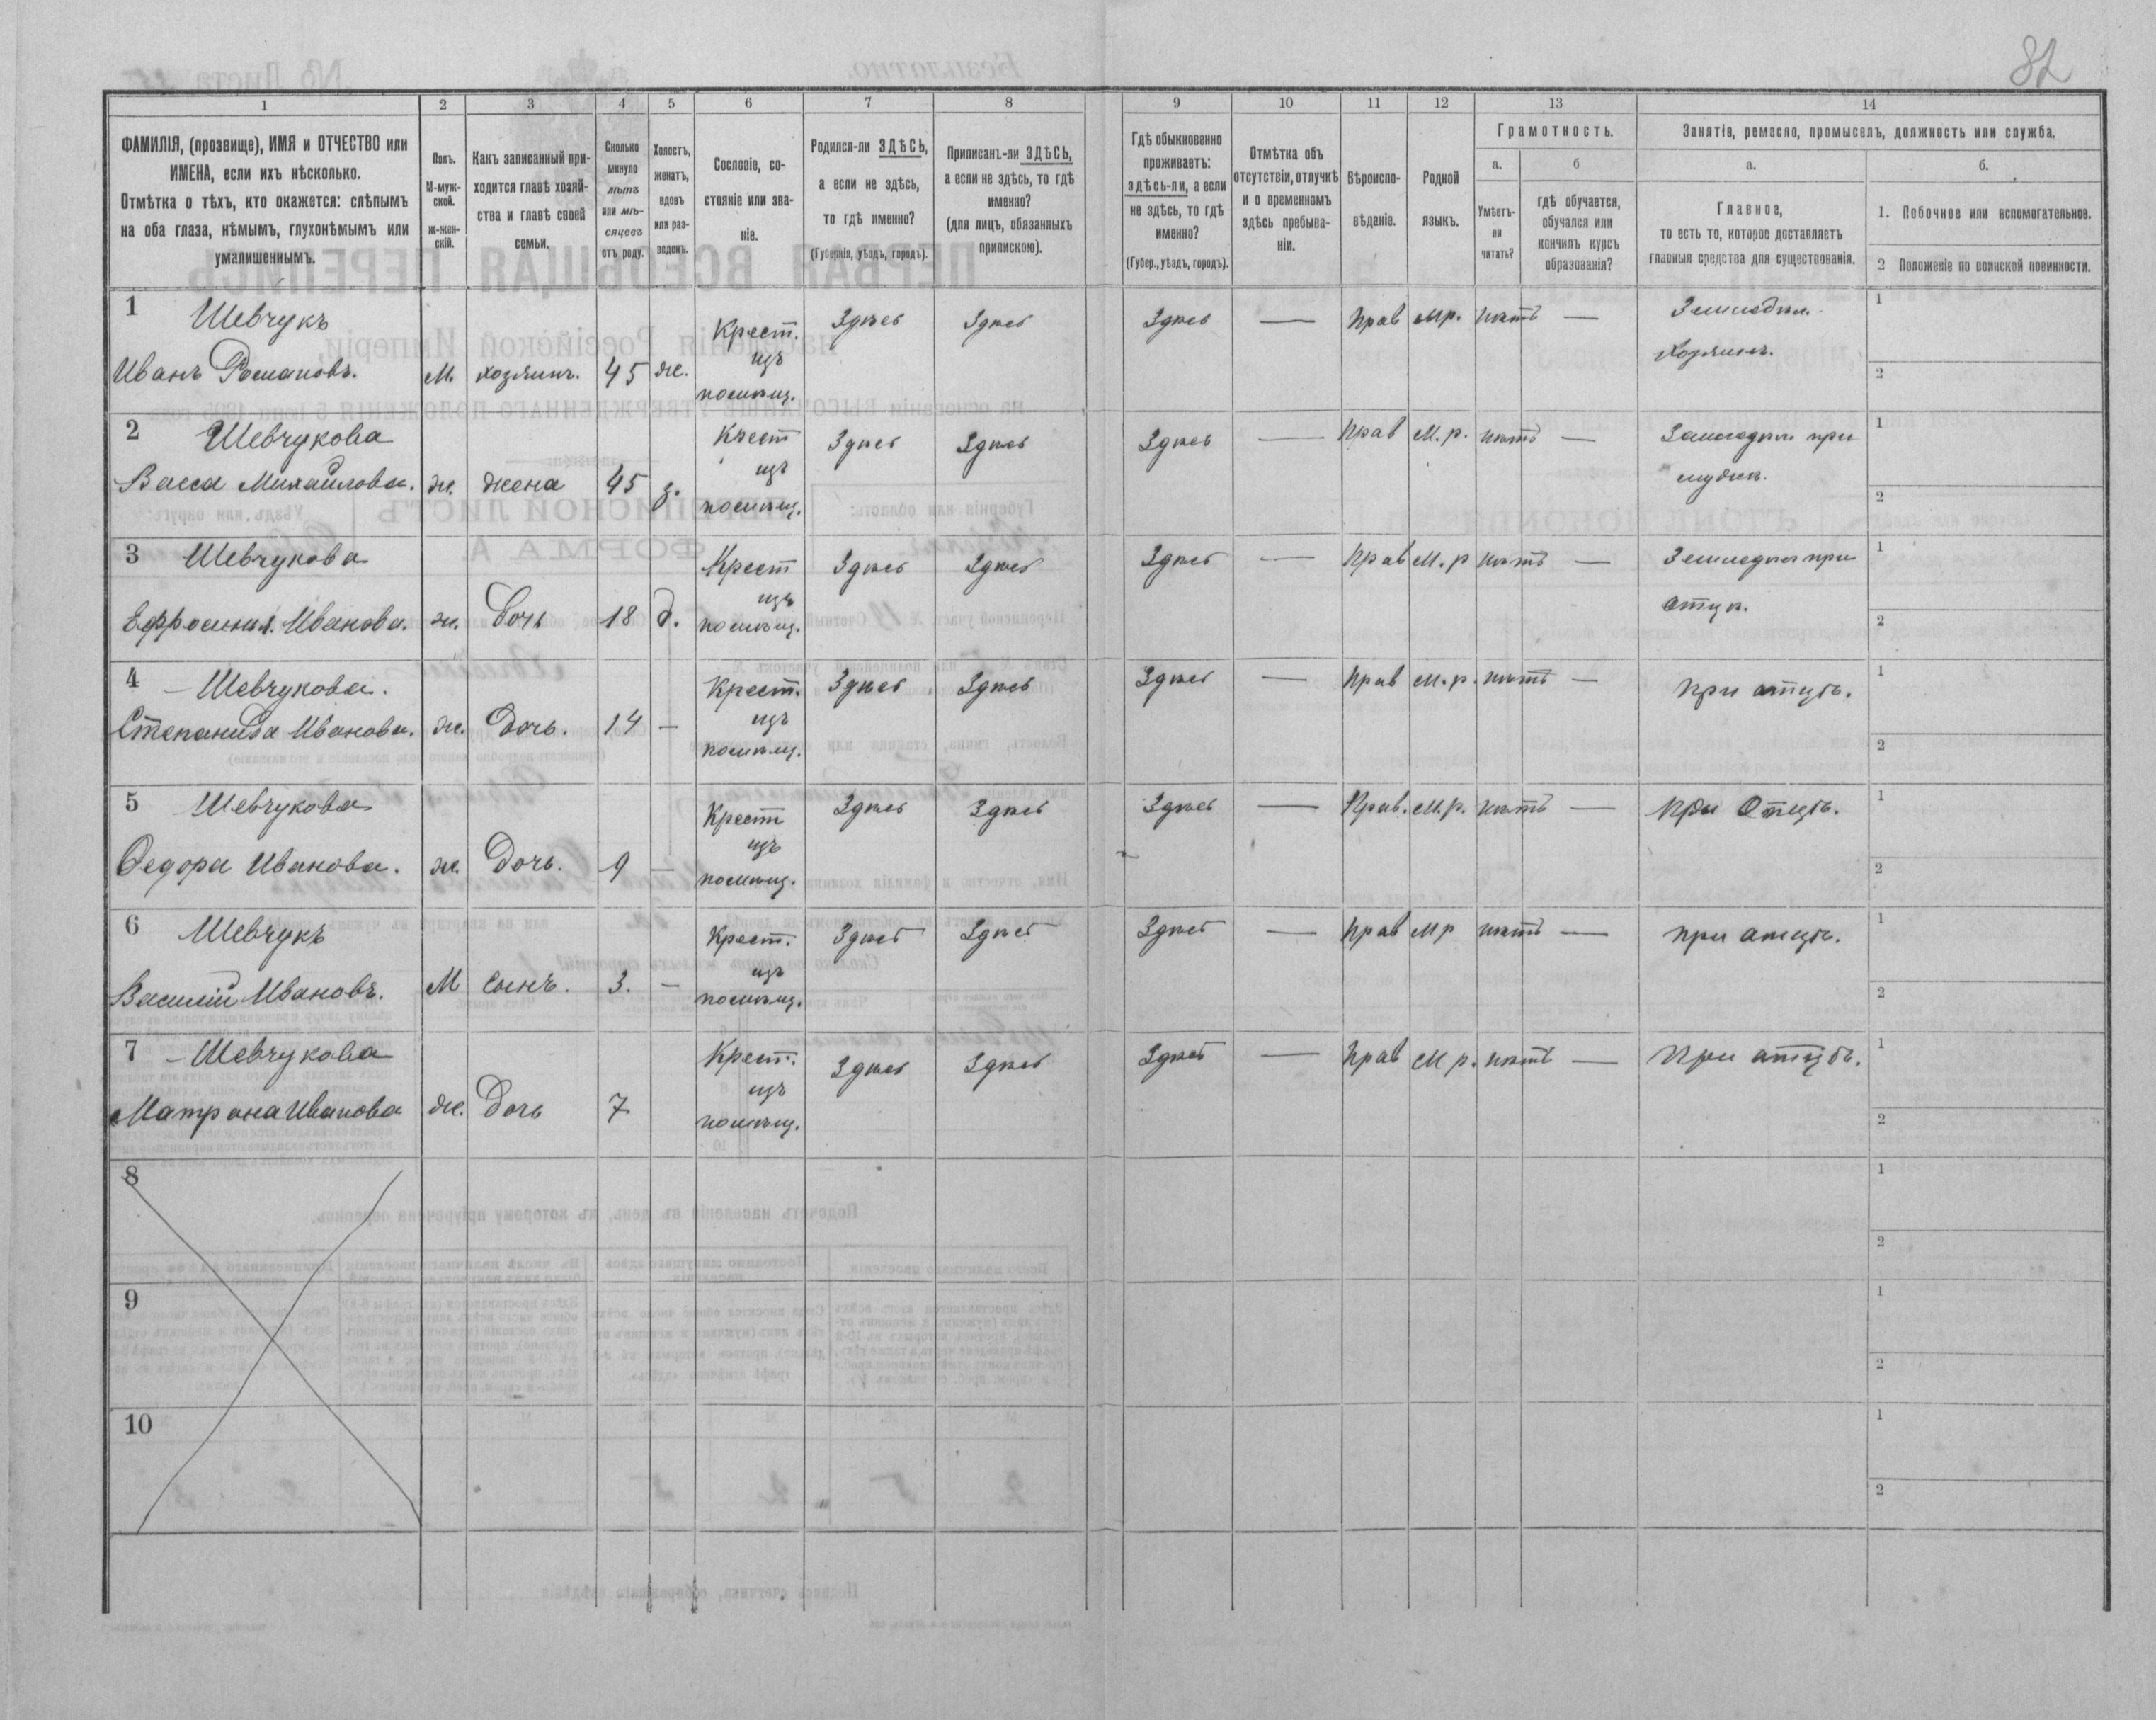 82
1 2 3 4 5 6 7 8 9 10 11 12 13 14
ФАМИЛІЯ, (прозвище), ИМЯ и ОТЧЕСТВО или
ИМЕНА, если ихъ нѣсколько.
Отмѣтка о тѣхъ, кто окажется: слѣпымъ
на оба глаза, нѣмымъ, глухонѣмымъ или
умалишеннымъ.
Полъ.
М-муж-
ской.
Ж-жен-
скій.
Какъ записанный при-
ходится главѣ хозяй-
ства и главѣ своей
семьи.
Сколько
минуло
лѣтъ
или мѣ-
сяцевъ
отъ роду.
Холостъ,
женатъ,
вдовъ
или раз-
веденъ.
Сословіе, со-
стояніе или зва-
ніе.
Родился-ли ЗДѢСЬ,
а если не здѣсь,
то гдѣ именно?
(Губернія, уѣздъ, городъ).
Приписанъ-ли ЗДѢСЬ,
а если не здѣсь, то гдѣ
именно?
(для лицъ, обязанныхъ
припискою).
Гдѣ обыкновенно
проживаетъ:
здѣсь-ли, а если
не здѣсь, то гдѣ
именно?
(Губер., уѣздъ, городъ).
Отмѣтка объ
отсутствіи, отлучкѣ
и о временномъ
здѣсь пребыва-
ніи.
Вѣроиспо-
вѣданіе.
Родной
языкъ.
Грамотность.
а.
Умѣетъ-
ли
читать?
б
гдѣ обучается,
обучался или
кончилъ курсъ
образованія?
Занятіе, ремесло, промыселъ, должность или служба.
а.
Главное,
то есть то, которое доставляетъ
главныя средства для существованія.
б.
1. Побочное или вспомогательное.
2 Положеніе по воинской повинности.
1 Шевчукъ Крест. Здѣсь Здѣсь Здѣсь — Прав мр. нѣтъ — Земледѣл. 1
Иванъ Романовъ. М. хозяинъ. 45 ж. изъ Хозяинъ.
помѣщ. 2
2 Шевчукова Крест Здѣсь Здѣсь Здѣсь — Прав м. р. нѣтъ — Земледѣл при 1
Васса Михайлова. ж. жена 45 з. изъ мужѣ.
помѣщ. 2
3 Шевчукова Крест Здѣсь Здѣсь Здѣсь — Прав м. р нѣтъ — Земледѣл при 1
изъ отцѣ.
Ефросинія Иванова. ж. Дочь 18 д. помѣщ. 2
4 Шевчукова. Крест. Здѣсь Здѣсь Здѣсь — Прав м. р. нѣтъ — при отцѣ. 1
Степанида Иванова. ж. Дочь. 14 — изъ
помѣщ. 2
5 Шевчукова Крест Здѣсь Здѣсь Здѣсь — Прав. м. р. нѣтъ — При Отцѣ. 1
изъ
Федора Иванова. ж. Дочь. 9 — помѣщ. 2
6 Шевчукъ Крест. Здѣсь Здѣсь Здѣсь — Прав мр нѣтъ — при отцѣ. 1
Василій Ивановъ. М сынъ. 3. — изъ
помѣщ. 2
7 Шевчукова Крест. Здѣсь Здѣсь Здѣсь — Прав м р. нѣтъ — При отцѣ. 1
Матрона Иванова ж. Дочь 7 изъ
помѣщ. 2
8 1
2
9 1
2
10 1
2